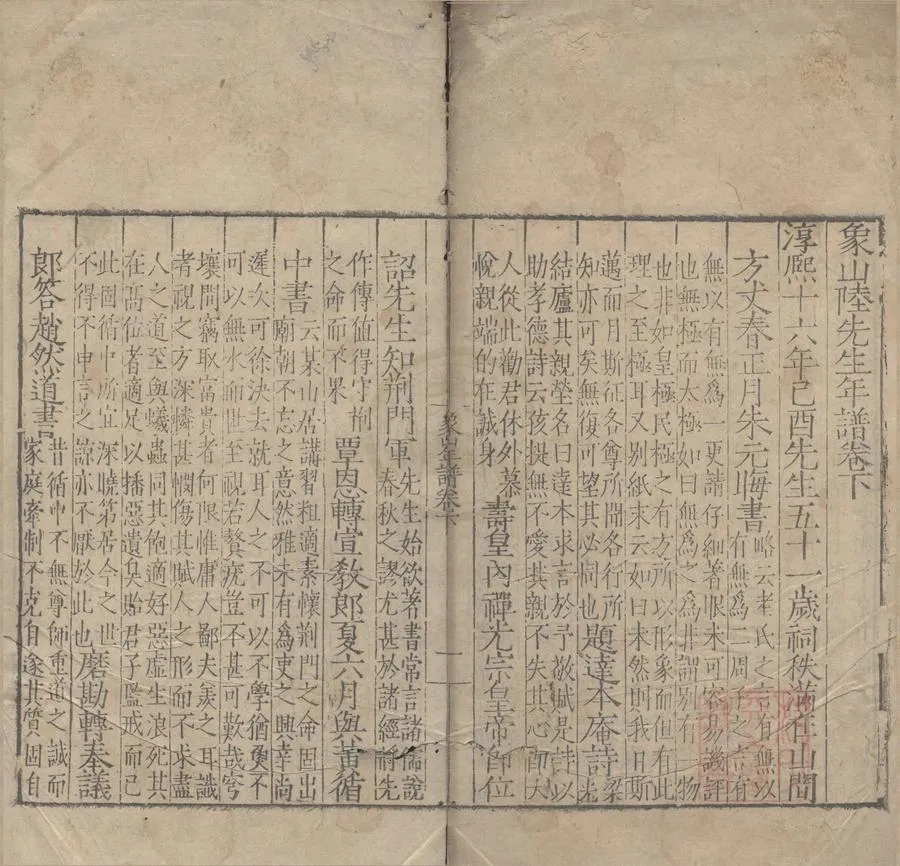 象山陸先生年譜卷下
淳熙十六年己酉先生五十一歲祠秩滿在山間
方丈春正月朱元晦書
略云老氏之言有無以
有無為二周子之言有
無以有無為一更請仔細著眼未可容易譏評
也無極而太極如曰無為之為非謂別有一物
也非如皇極民極之有方所以形象而但有此
理之至極耳又別紙末云如曰未然則我日斯
邁而月斯征各尊所聞各行所
知亦可矣無復可望其必同也
題達本庵詩
梁光
結廬其親塋名曰達本求言於予敬賦是詩以
助孝德詩云孩提無不愛其親不失其心即大
人從此勸君休外慕
悅親端的在誠身
壽皇內禪光宗皇帝即位
象山年譜卷下
一
詔先生知荊門軍
先生始欲著書常言諸儒說
春秋之謬尤甚於諸經將先
作傳值得守荊
之命而不果
覃恩轉宣教郎夏六月與黃循
中書
云某山居講習粗適素懷荊門之命固出
廟朝不忘之意然雅未有為吏之興幸尚
遲次可徐決去就耳人之不可以不學猶魚不
可以無水而世至視若贅疣豈不甚可歎哉穹
壤間竊取富貴者何限惟庸人鄙夫羨之耳識
者視之方深憐甚憫傷其賦人之形而不求盡
人之道至與蟻蟲同其飽適好惡虛生浪死其
在高位者適足以播惡遺臭貽君子監戒而已
此固循中所宜深曉第居今之世
不得不申言之諒亦不厭於此也
磨勘轉奉議
郎答趙然道書
昔循中不無尊師重道之誠而
家庭牽制不克自遂其質固自